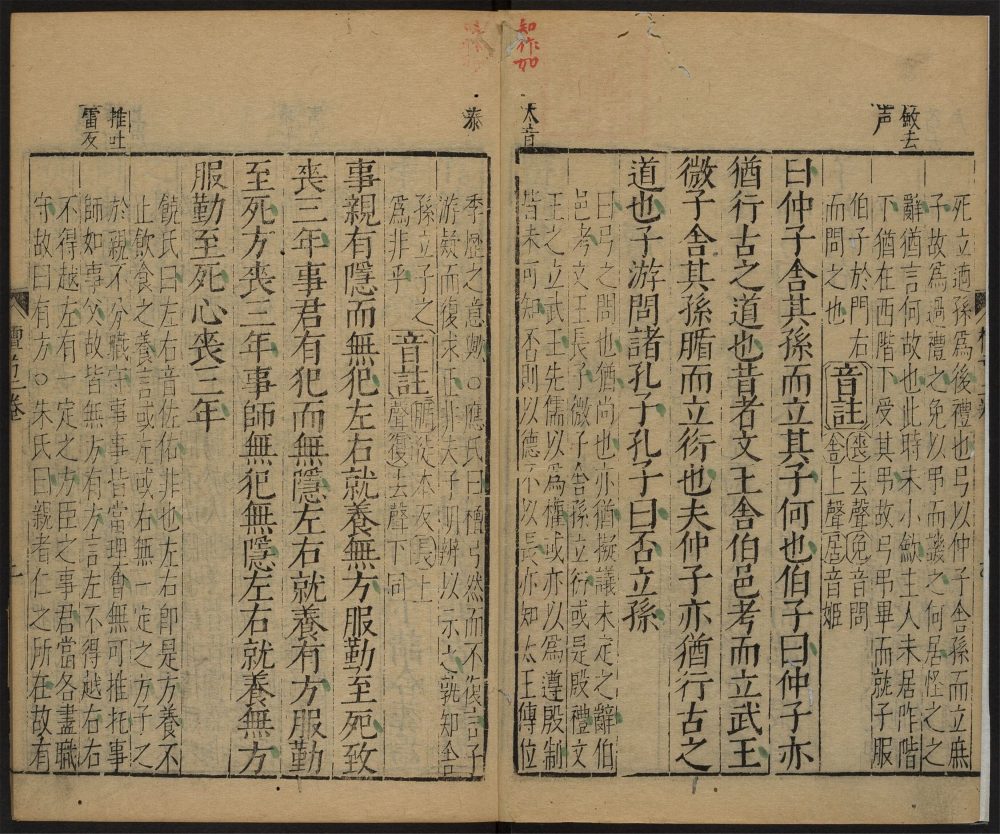 知作如
敏去
声
太音
泰
推吐
雷反
死立適孫爲後禮也弓以仲子舍孫而立庶
子故爲過禮之免以弔而譏之何居怪之之
辭猶言何故也此時未小斂主人未居阼階
下猶在西階下受其弔故弓弔畢而就子服
伯子於門右
而問之也音註喪去聲免音問
舍上聲居音姬
曰仲子舍其孫而立其子何也伯子曰仲子亦
猶行古之道也昔者文王舍伯邑考而立武王
微子舍其孫腯而立衍也夫仲子亦猶行古之
道也子游問諸孔子孔子曰否立孫
曰弓之問也猶尚也亦猶擬議未定之辭伯
邑考文王長子微子舍孫立衍或是殷禮文
王之立武王先儒以爲權或亦以爲遵殷制
皆未可知否則以德不以長亦知太王傳位
季歷之意歟○應氏曰檀弓然而不復言子
游疑而復求正非夫子明辨以示之孰知舍
孫立子之
爲非乎音註腯徒本反長上
聲復去聲下同
事親有隱而無犯左右就養無方服勤至死致
喪三年事君有犯而無隱左右就養有方服勤
至死方喪三年事師無犯無隱左右就養無方
服勤至死心喪三年
饒氏曰左右音佐佑非也左右卽是方養不
止飲食之養言或左或右無一定之方子之
於親不分職守事事皆當理會無可推托事
師如事父故皆無方有方言左不得越右右
不得越左有一定之方臣之事君當各盡職
守故曰有方○朱氏曰親者仁之所在故有